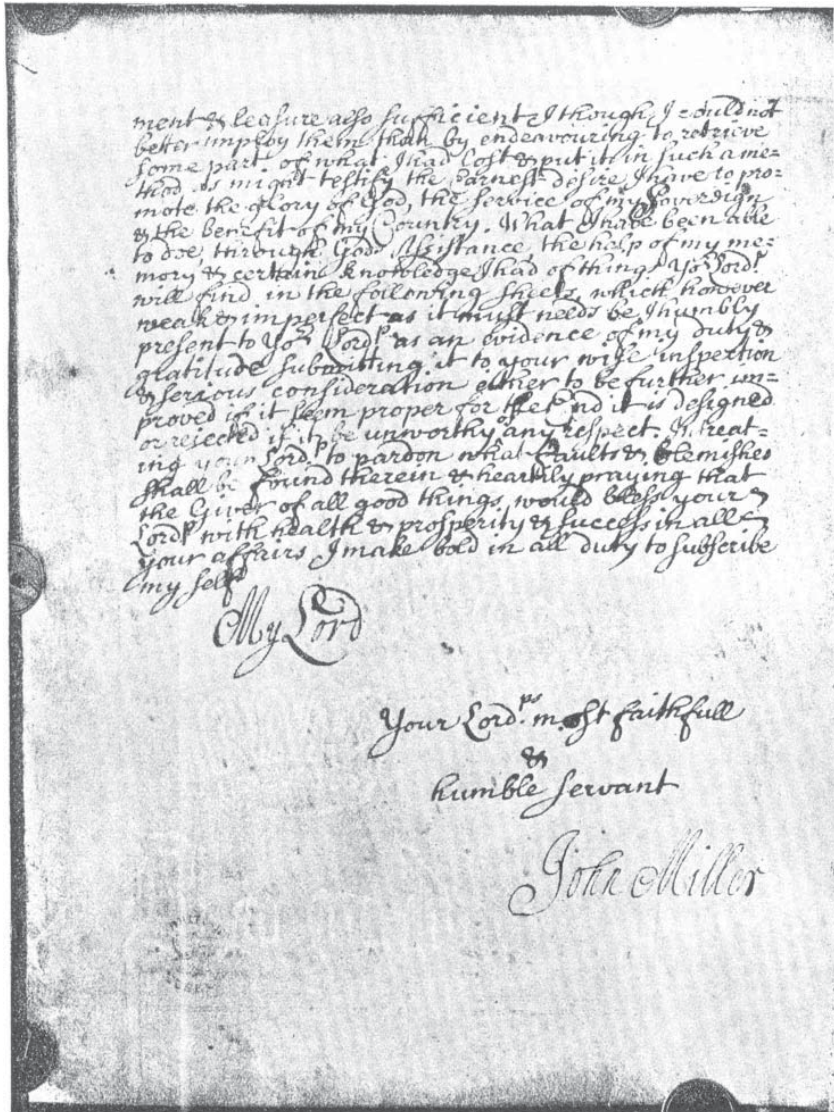 ment & leasure also sufficient I though I could not
better imploy them than by endeavouring to retrieve
some part of what I had lost & put it in such a me=
thod as might testify the earnest desire I have to pro=
mote the glory of God, the service of my Sovereign
& the benefit of my Country. What I have been able
to doe, through Gods Assistance, the help of my me=
mory & certain knowledge I had of things Yor Lordp
will find in the following sheets, which however
weak & imperfect as it must needs be I humbly
present to Yor Lordp as an evidence of my duty &
gratitude submitting it to your wise inspection
& serious consideration either to be further im=
proved if it seem proper for the End it is designed
or rejected if it be unworthy of any respect. Intreat=
ing your Lordp to pardon what faults & blemishes
shall be found therein & heartily praying that
the Giver of all good things would bless your
Lordp with health & prosperity & success in all
your affairs I make bold in all duty to subscribe
my self
My Lord
Your Lord.ps most faithfull
&
humble servant
John Miller